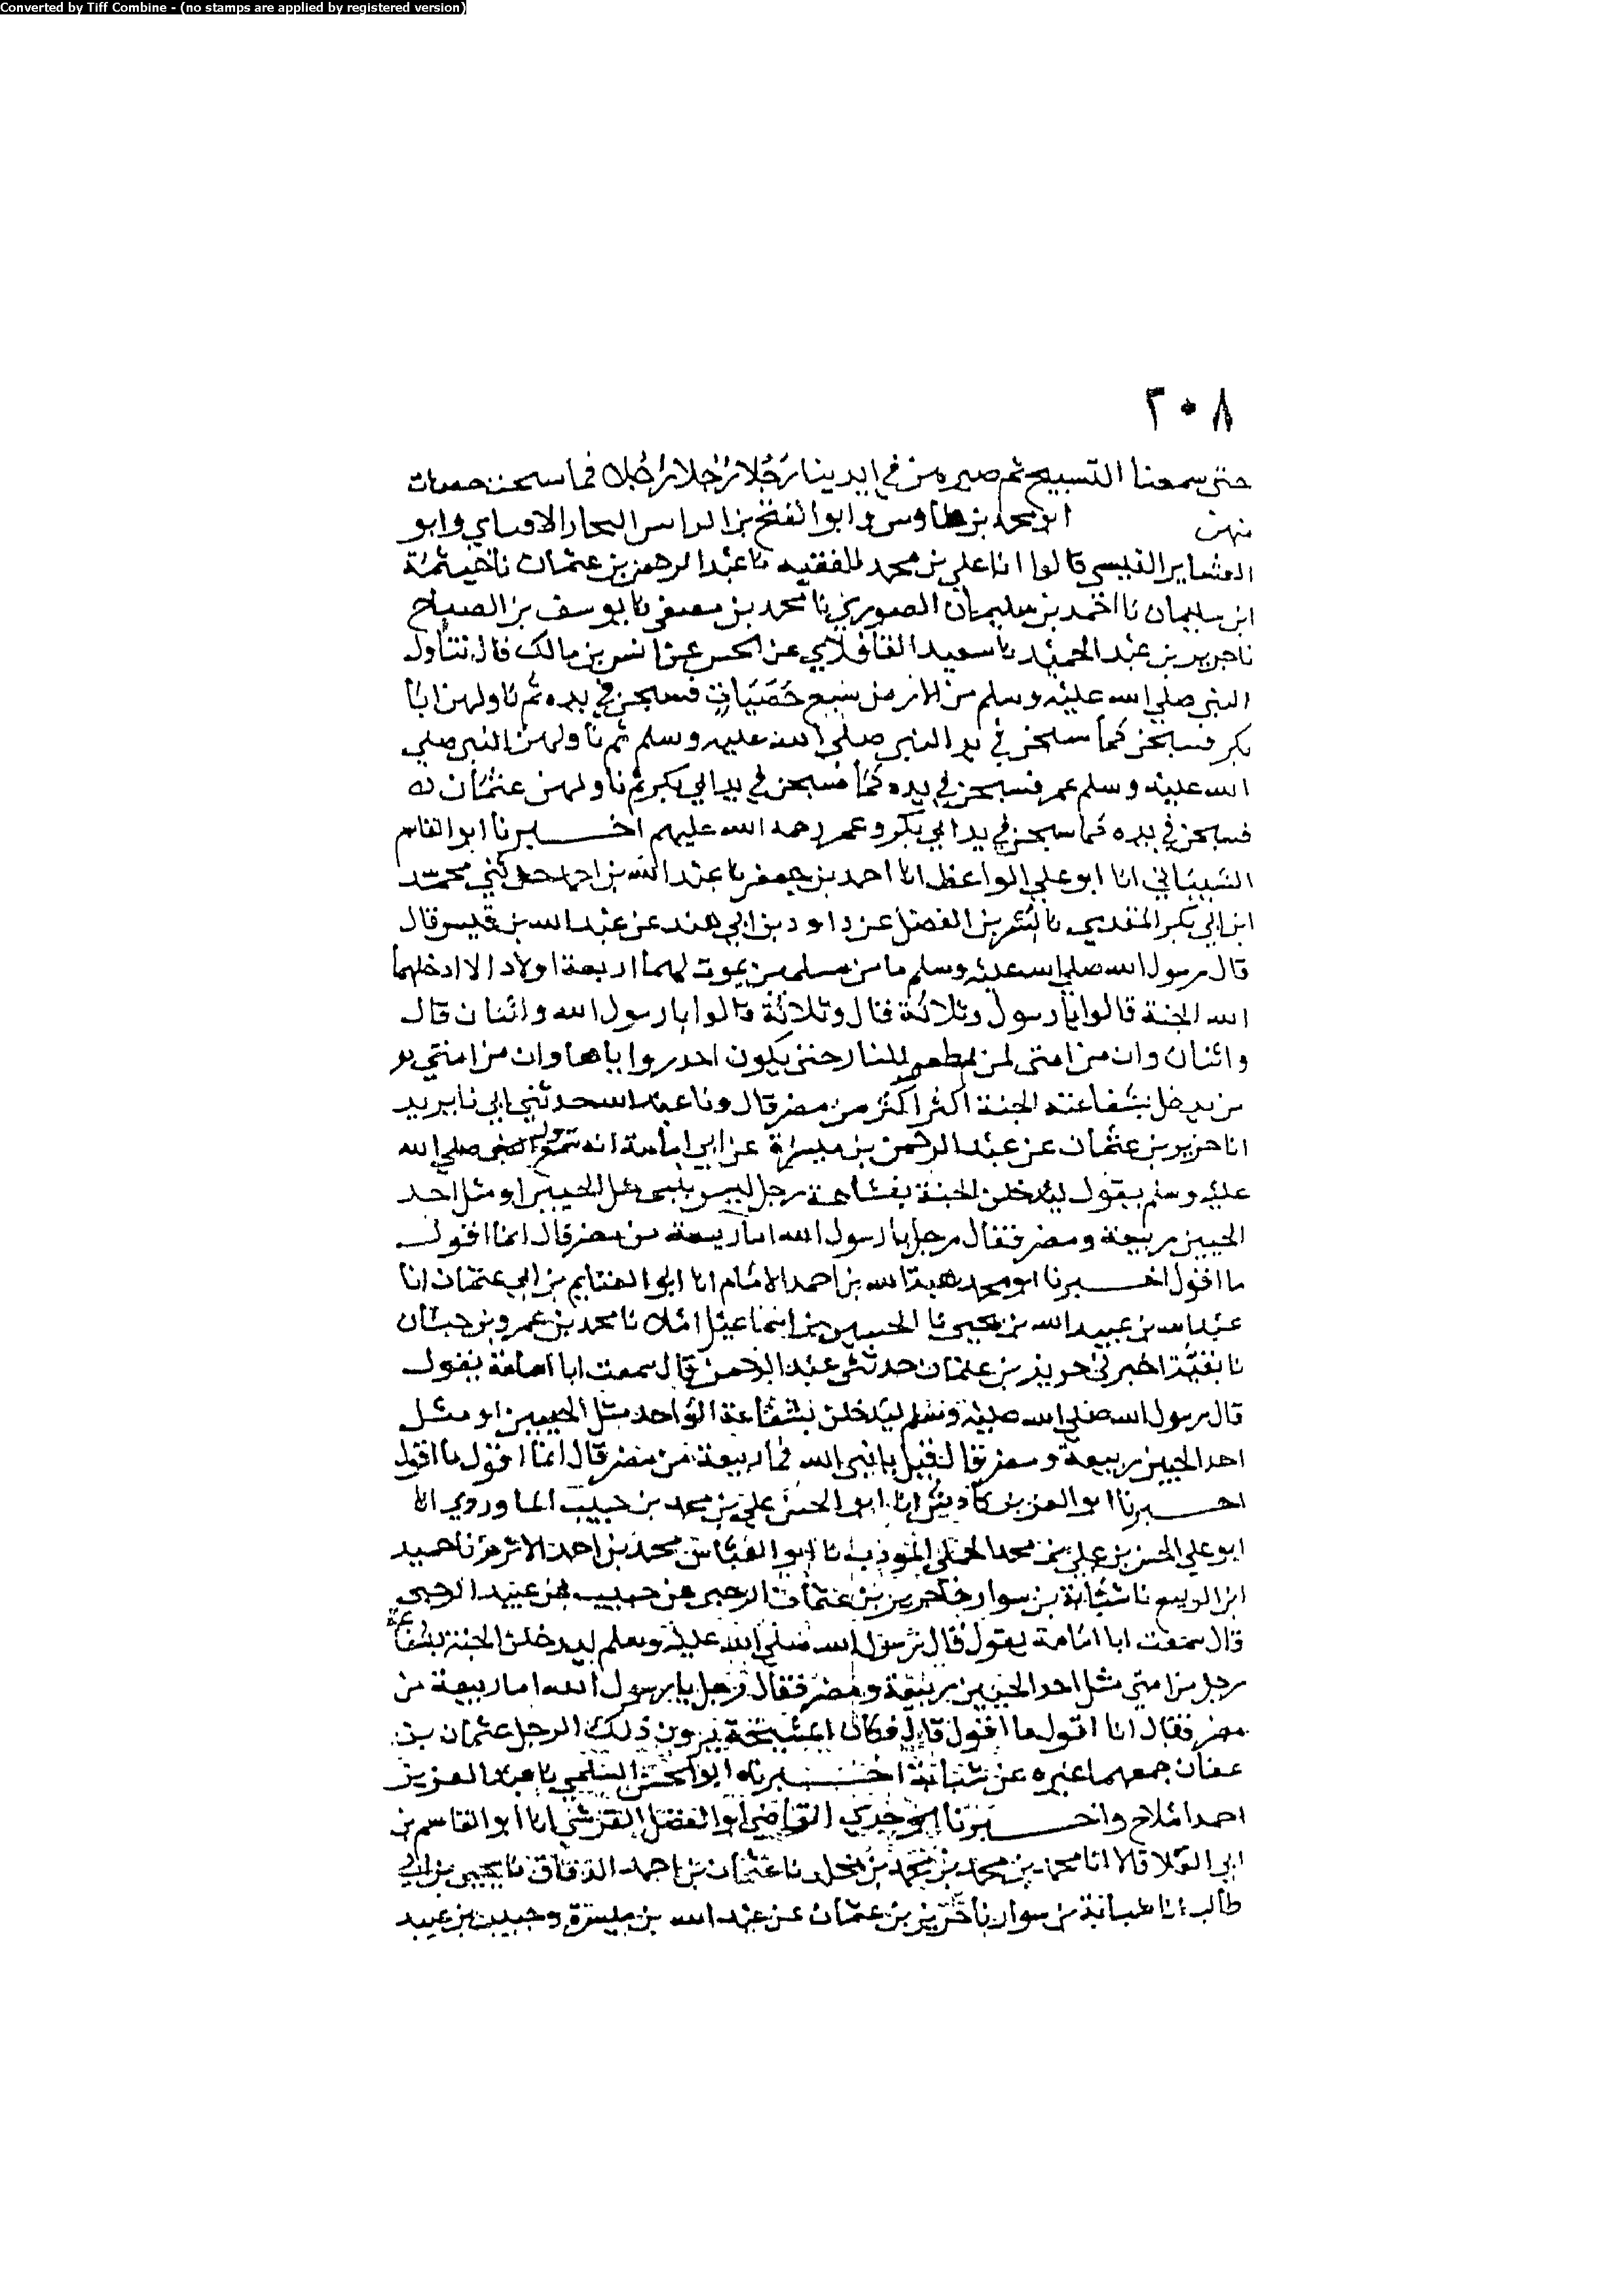 Converted by Tiff Combine - (no stamps are applied by registered version)
٢٠٨
حتى سمعنا التسبيح ثم صيرهن في ايدينا رجلا رجلا رجلا فما سبحت حصاة
منهن ابو محمد بن طاوس وابو الفتح وابو
العشاير القيسي قالوا انا علي بن محمد الفقيه نا عبد الرحمن بن عثمان نا خيثمة
ابن سليمان نا احمد بن سليمان الصوري نا محمد بن مصفى نا يوسف بن الصباح
نا جرير بن عبد الحميد نا سعيد القافلاي عن الحسن عن انس بن مالك قال تناول
النبي صلى الله عليه وسلم من الارض سبع حصيات فسبحن في يده ثم ناولهن ابا
بكر فسبحن كما سبحن في يد النبي صلى الله عليه وسلم ثم ناولهن النبي صلى
الله عليه وسلم عمر فسبحن في يده كما سبحن في يد ابي بكر ثم ناولهن عثمان
فسبحن في يده كما سبحن في يد ابي بكر وعمر رحمة الله عليهم اخبرنا ابو القاسم
الشيباني انا ابو علي الواعظ انا احمد بن جعفر نا عبد الله بن احمد حدثني محمد
ابن ابي بكر المقدمي نا بشر بن الفضل عن داود بن ابي هند عن عبد الله بن قيس قال
قال رسول الله صلى الله عليه وسلم ما من مسلمين يموت لهما اربعة اولاد الا ادخلهما
الله الجنة قالوا يا رسول وثلاثة قال وثلاثة قالوا يا رسول الله واثنان قال
واثنان وان من امتي لمن يعظم للنار حتى يكون احد زواياها وان من امتي
من يدخل بشفاعته الجنة اكثر اكثر من مضر قال ونا عبد الله حدثني ابي نا يزيد
انا حريز بن عثمان عن عبد الرحمن بن ميسرة عن ابي امامة انه سمع النبي صلى الله
عليه وسلم يقول ليدخلن الجنة بشفاعة رجل ليس بنبي مثل الحيين او مثل احد
الحيين ربيعة ومضر فقال رجل يا رسول الله اما ربيعة من مضر قال انما اقول
ما اقول اخبرنا ابو محمد هبة الله بن احمد الامام انا ابو الغنايم بن ابي عثمان انا
عبد الله بن عبيد الله بن يحيى نا الحسين بن اسماعيل املا نا محمد بن عمرو بن حنان
نا بقية اخبرني حريز بن عثمان حدثني عبد الرحمن قال سمعت ابا امامة يقول
قال رسول الله صلى الله عليه وسلم ليدخلن بشفاعة الواحد مثل الحيين او مثل
احد الحيين ربيعة ومضر قال فقيل يا نبي الله فما ربيعة من مضر قال انما اقول ما اقول
اخبرنا ابو العز بن كادش انا ابو الحسن علي بن محمد بن حبيب الماوردي انا
ابو علي الحسن بن علي بن محمد الجبلي المودب نا ابو العباس محمد بن احمد الاثرم نا حميد
ابن الربيع نا شبابة بن سوار نا حريز بن عثمان الرحبي عن حبيب بن عبيد الرحبي
قال سمعت ابا امامة يقول قال رسول الله صلى الله عليه وسلم ليدخلن الجنة بشفاعة
رجل من امتي مثل احد الحيين ربيعة ومضر فقال رجل يا رسول الله اما ربيعة من
مضر فقال انا اقول ما اقول قال فكان المشيخة يرون ذلك الرجل عثمان بن
عفان جمعهما غيره عن شبابة اخبرناه ابو الحسن السلمي نا عبد العزيز
احمد املاح واخبرنا ابو جدي القاضي ابو الفضل القرشي انا ابو القاسم بن
ابي العلا قالا انا محمد بن محمد بن محمد بن مخلد نا عثمان بن احمد الدقاق نا يحيى بن ابي
طالب انا شبابة بن سوار نا حريز بن عثمان عن عبد الله بن ميسرة وحبيب بن عبيد